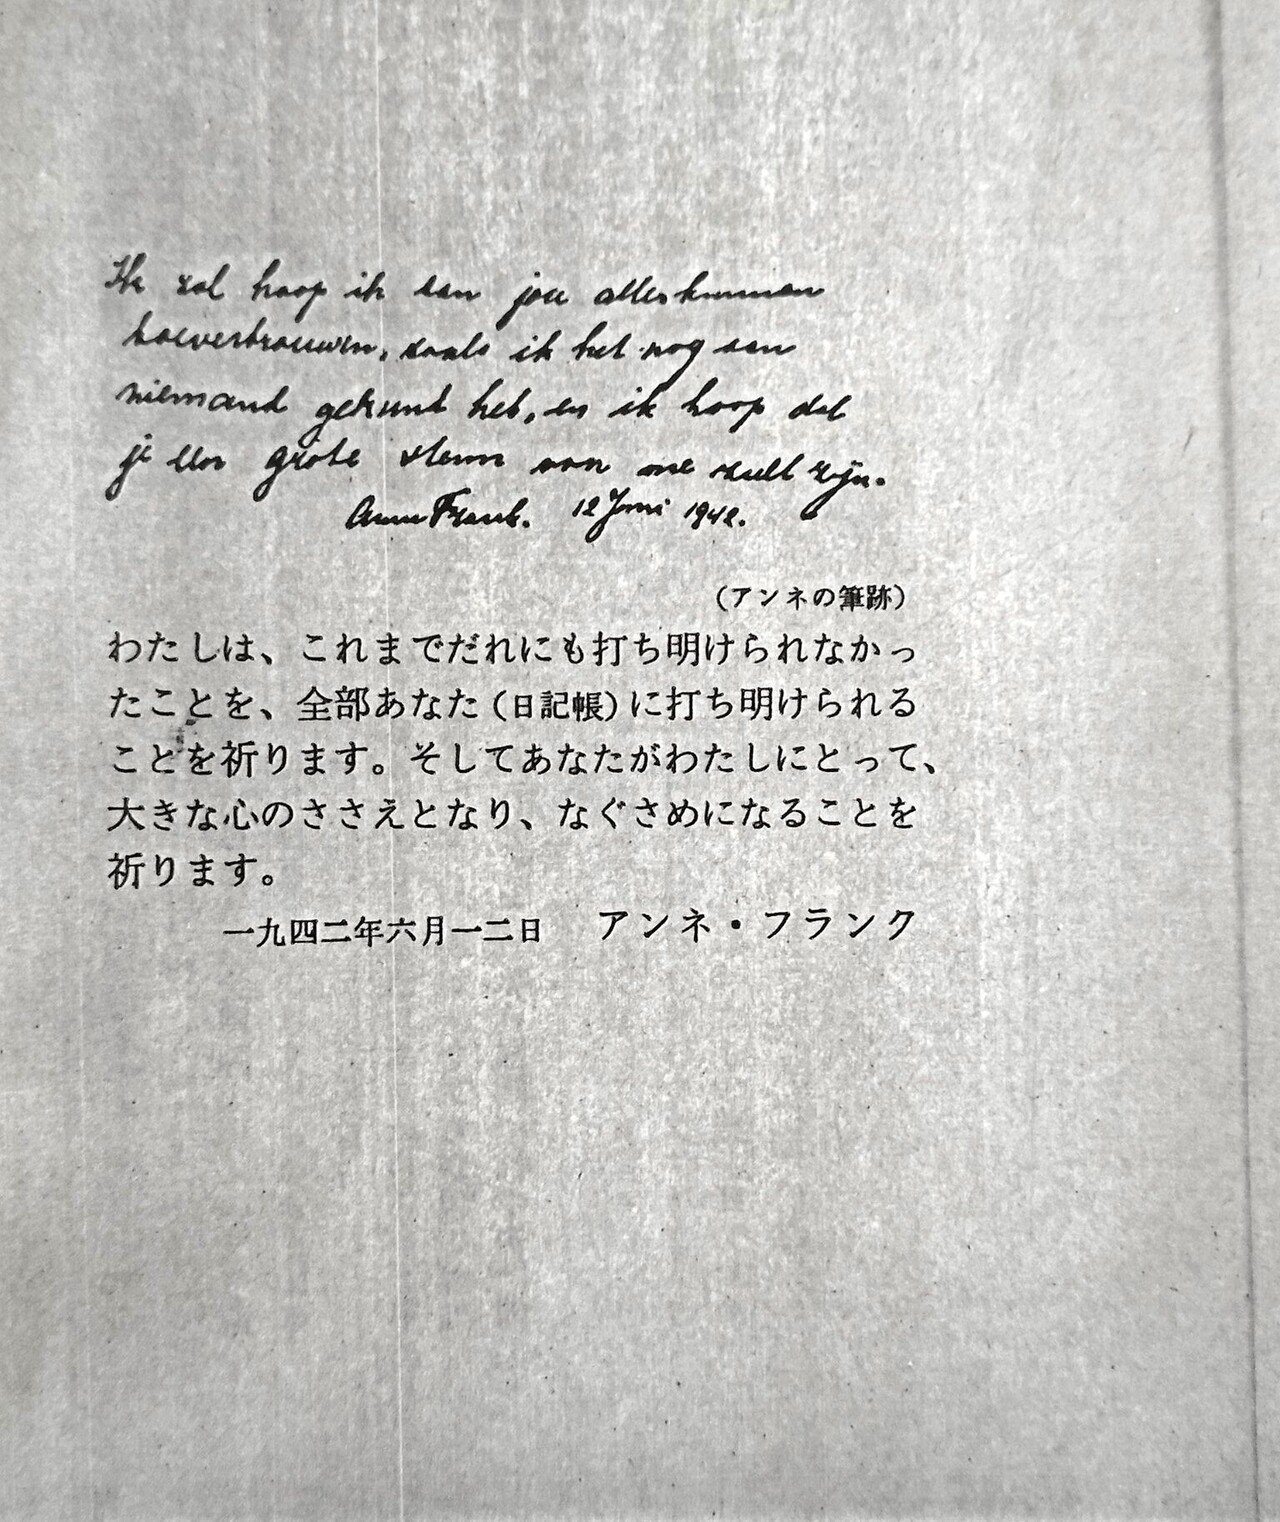 Ik zal hoop ik aan jou alles kunnen
toevertrouwen, zoals ik het nog aan
niemand gekund heb, en ik hoop dat
je een grote steun van me zult zijn.
Anne Frank. 12 Juni 1942.
（アンネの筆跡）
わたしは、これまでだれにも打ち明けられなかっ
たことを、全部あなた（日記帳）に打ち明けられる
ことを祈ります。そしてあなたがわたしにとって、
大きな心のささえとなり、なぐさめになることを
祈ります。
一九四二年六月一二日　アンネ・フランク